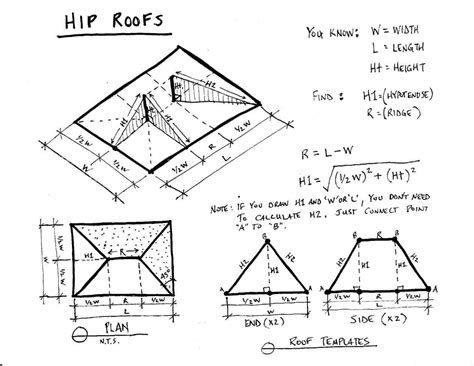 HIP ROOFS
YOU KNOW: W = WIDTH
L = LENGTH
Ht = HEIGHT
FIND: H1 = (HYPOTENUSE)
R = (RIDGE)
R = L - W
H1 = √(1/2W)² + (Ht)²
NOTE: IF YOU DRAW H1 AND 'W' OR 'L', YOU DON'T NEED
TO CALCULATE H2. JUST CONNECT POINT
"A" TO "B".
Ht
H1
H1
H1
1/2W
W
1/2W
1/2W
R
1/2W
L
1/2W
1/2W
W
R
H1
45°
1/2W
R
1/2W
L
PLAN
N.T.S.
B
H2
H1
H2
A
A
1/2W
1/2W
W
END (X2)
B
B
H2
H1
H1
H2
A
A
1/2W
R
1/2W
L
SIDE (X2)
ROOF TEMPLATES